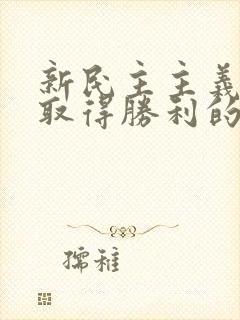 新民主主義
取得勝利的
孺稚